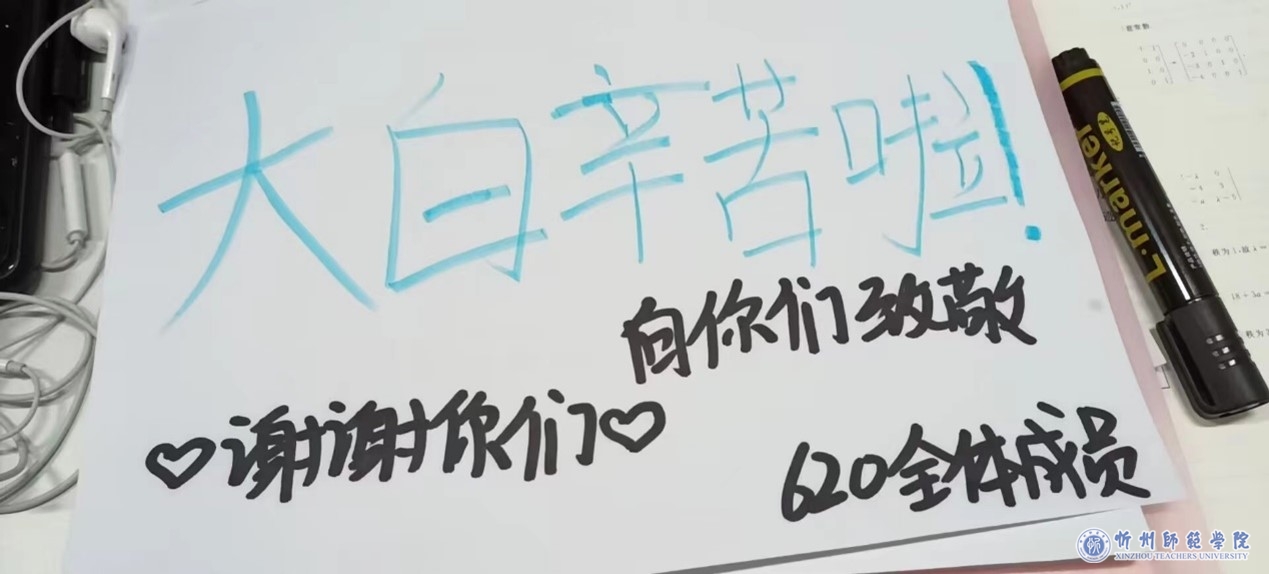 大白辛苦啦!
向你们致敬
♡谢谢你们♡
620全体成员
L·marker
忻州師範學院
XINZHOU TEACHERS UNIVERSITY